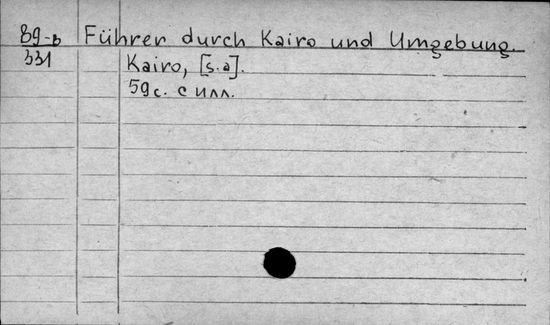 89-в Führer durch Kairo und Umgebung.
331 Kairo, [s.a].
59 с. с илл.